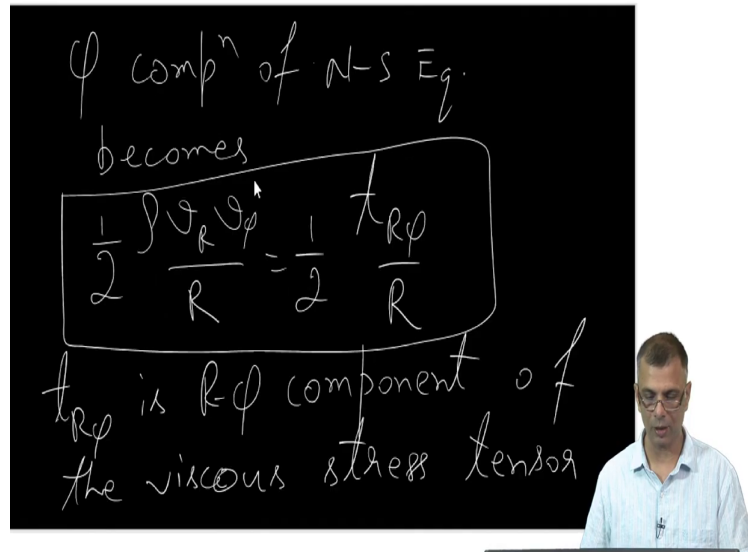 φ compⁿ of N-S Eq.
becomes
1/2 ρ v_R v_φ / R = 1/2 t_Rφ / R
t_Rφ is R-φ component of
the viscous stress tensor